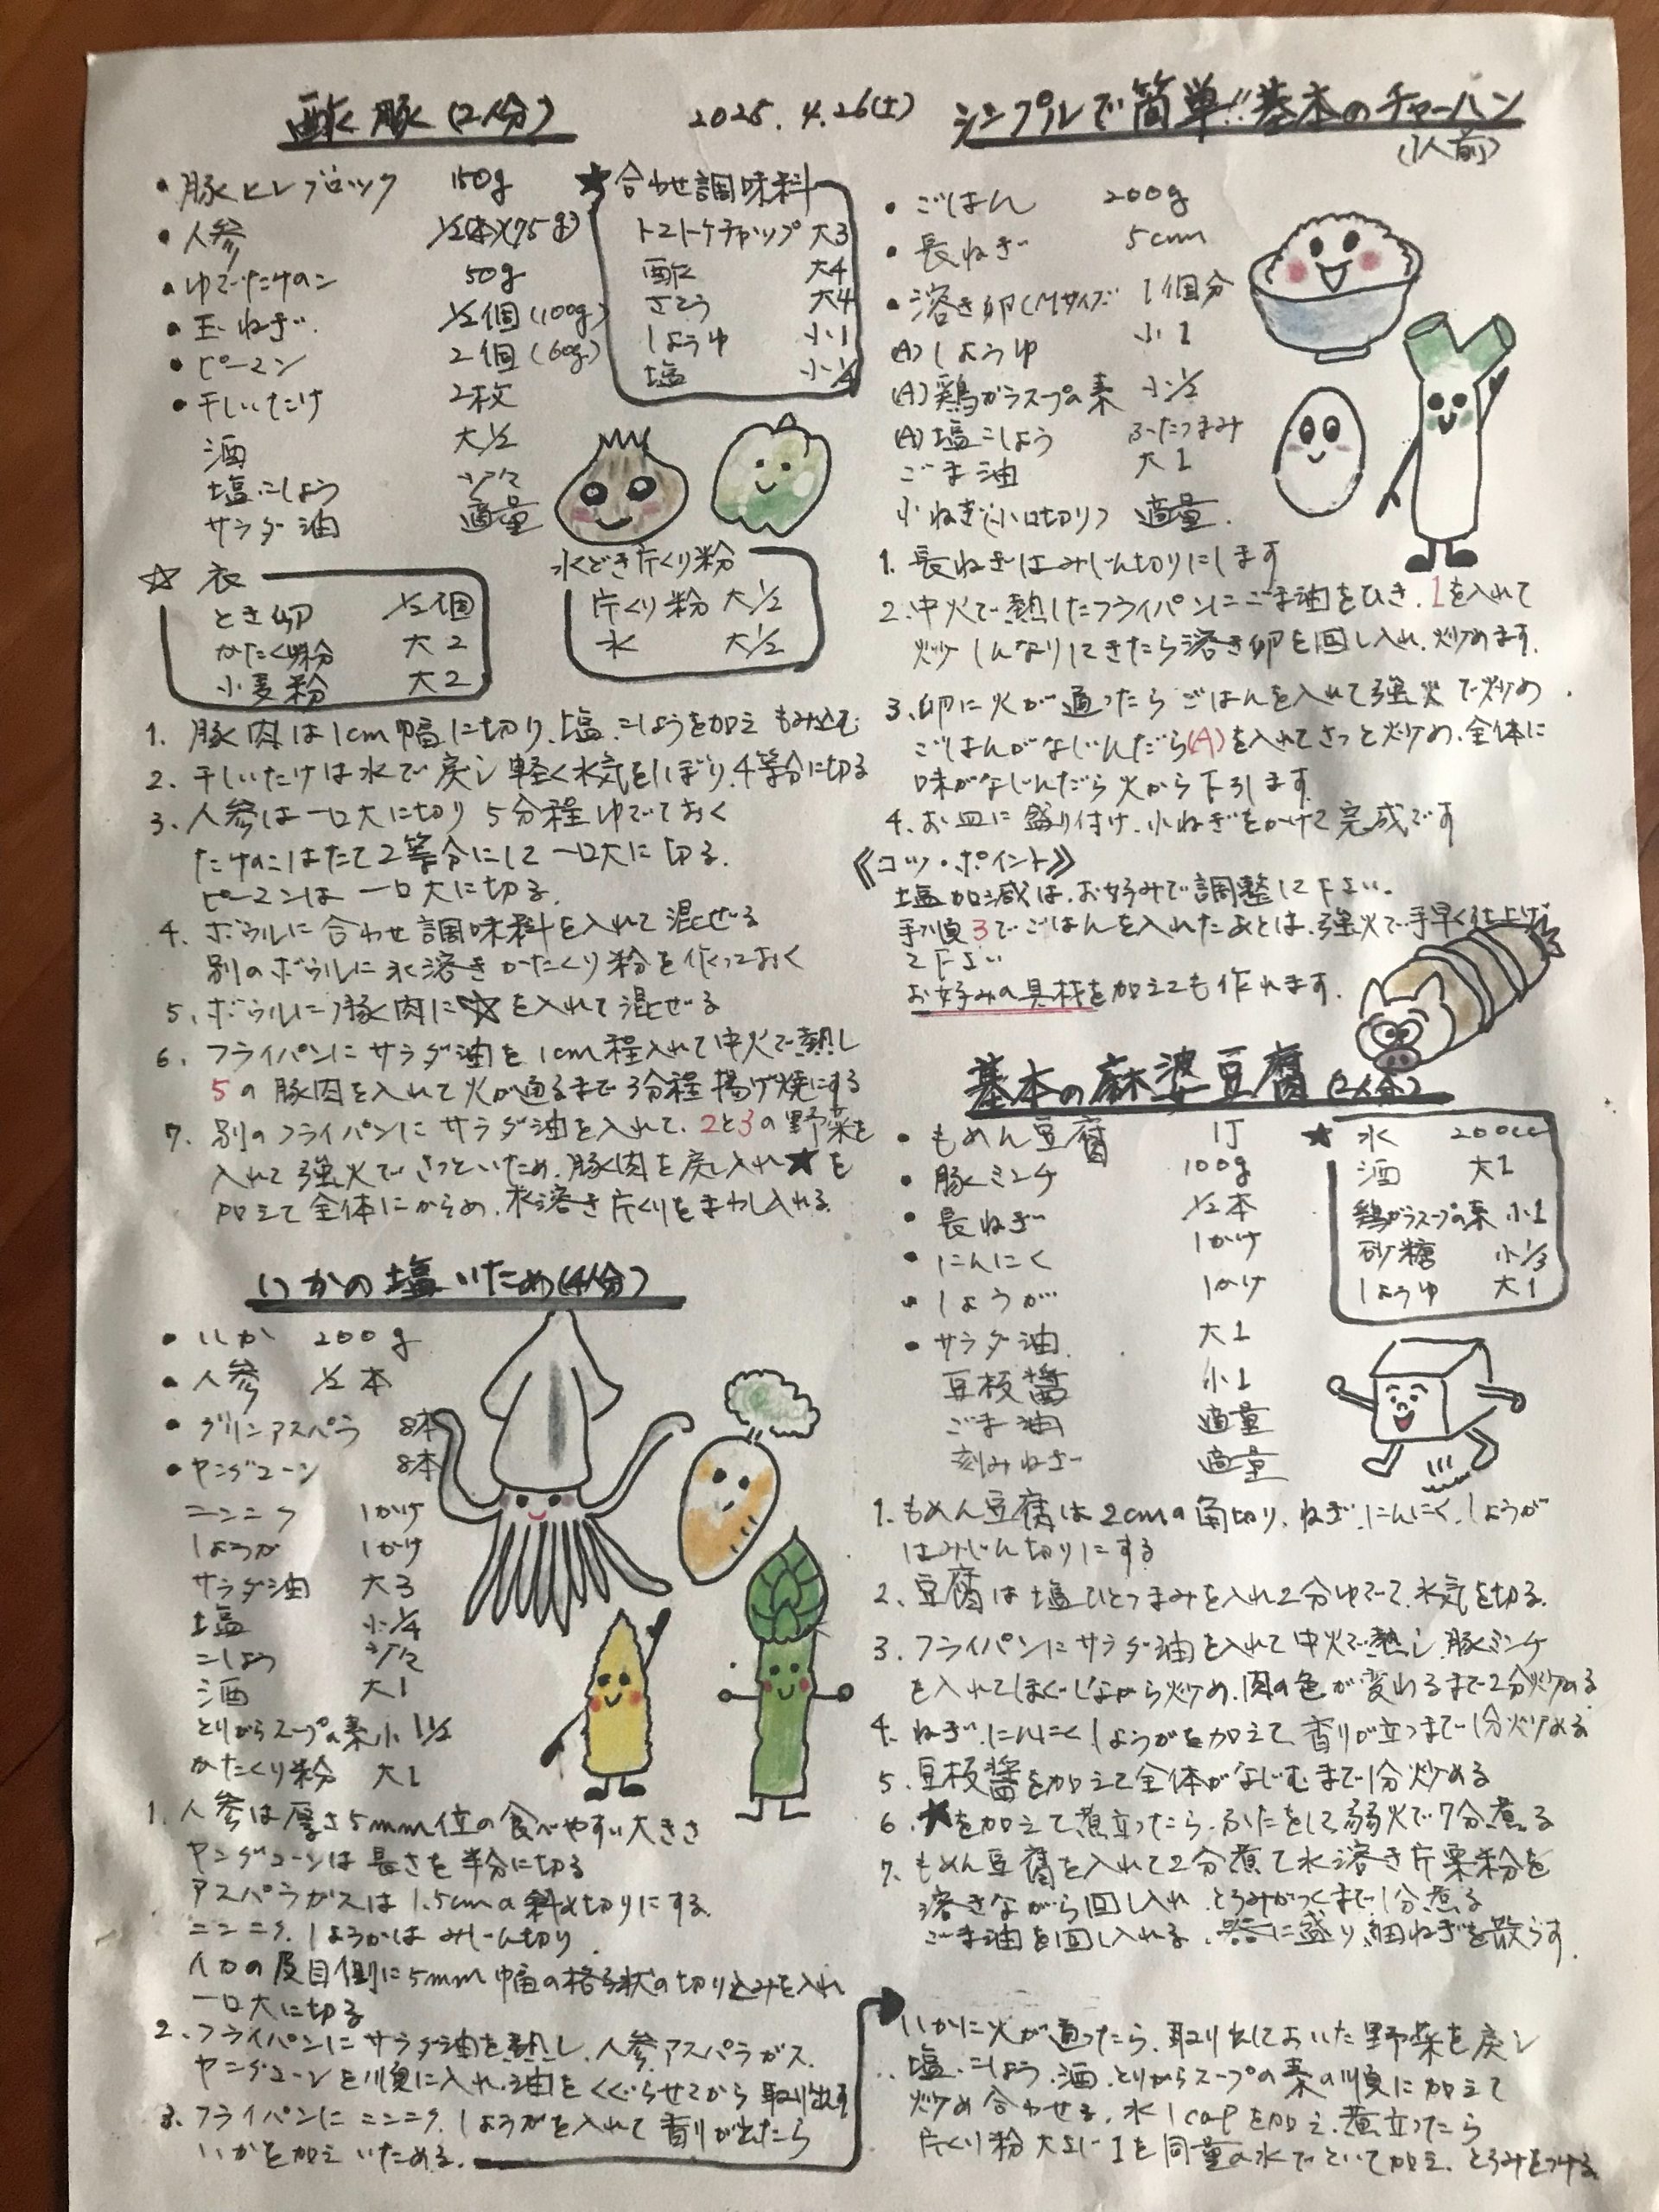 酢豚(2人分)
2025.4.26(土)
・豚ヒレブロック 150g
・人参 1/2(本)(75g)
・ゆでたけのこ 50g
・玉ねぎ 1/2個(100g)
・ピーマン 2個(60g)
・干しいたけ 2枚
酒 大1/2
塩こしょう 少々
サラダ油 適量
★合わせ調味料
トマトケチャップ 大3
酢 大4
さとう 大4
しょうゆ 小1
塩 小1/4
☆衣
とき卵 1/2個
かたくり粉 大2
小麦粉 大2
水どき片くり粉
片くり粉 大1/2
水 大1/2
1. 豚肉は1cm幅に切り、塩こしょうを加えもみ込む
2. 干しいたけは水で戻し軽く水気をしぼり、4等分に切る
3. 人参は一口大に切り5分程ゆでておく
たけのこはたて2等分にして一口大に切る.
ピーマンは一口大に切る.
4. ボウルに合わせ調味料を入れて混ぜる
別のボウルに水溶きかたくり粉を作っておく
5. ボウルに豚肉に☆を入れて混ぜる
6. フライパンにサラダ油を1cm程入れて中火で熱し
5の豚肉を入れて火が通るまで3分程揚げ焼にする
7. 別のフライパンにサラダ油を入れて、2と3の野菜を
入れて強火でさっといため、豚肉を戻し入れ★を
加えて全体にからめ、水溶き片くりをまわし入れる.
いかの塩いため(4人分)
・いか 200g
・人参 1/2本
・グリンアスパラ 8本
・ヤングコーン 8本
ニンニク 1かけ
しょうが 1かけ
サラダ油 大3
塩 小1/4
こしょう 少々
酒 大1
とりがらスープの素 小1 1/2
かたくり粉 大1
1. 人参は厚さ5mm位の食べやすい大きさ
ヤングコーンは長さを半分に切る
アスパラガスは1.5cmの斜め切りにする.
ニンニク、しょうがはみじん切り.
イカの皮目側に5mm幅の格子状の切り込みを入れ
一口大に切る
2. フライパンにサラダ油を熱し、人参、アスパラガス、
ヤングコーンを順に入れ、油をくぐらせてから取り出す
3. フライパンにニンニク、しょうがを入れて香りが出たら
いかを加えいためる.
シンプルで簡単!!基本のチャーハン
(1人前)
・ごはん 200g
・長ねぎ 5cm
・溶き卵(Mサイズ 1個分
(A)しょうゆ 小1
(A)鶏ガラスープの素 小1/2
(A)塩こしょう ふたつまみ
ごま油 大1
小ねぎ(小口切り) 適量.
1. 長ねぎはみじん切りにします
2. 中火で熱したフライパンにごま油をひき、1を入れて
炒ししんなりしてきたら溶き卵を回し入れ、炒めます.
3. 卵に火が通ったらごはんを入れて強火で炒め.
ごはんがなじんだら(A)を入れてさっと炒め、全体に
味がなじんだら火から下ろします.
4. お皿に盛り付け、小ねぎをかけて完成です
《コツ・ポイント》
塩加減は、お好みで調整して下さい.
手順3でごはんを入れたあとは、強火で手早く仕上げ
て下さい
お好みの具材を加えても作れます.
基本の麻婆豆腐(2人分)
・もめん豆腐 1丁
・豚ミンチ 100g
・長ねぎ 1/2本
・にんにく 1かけ
・しょうが 1かけ
・サラダ油 大1
豆板醤 小1
ごま油 適量
刻みねぎ 適量
★水 200cc
酒 大1
鶏ガラスープの素 小1
砂糖 小1/3
しょうゆ 大1
1. もめん豆腐は2cmの角切り、ねぎ、にんにく、しょうが
はみじん切りにする
2. 豆腐は塩ひとつまみを入れ2分ゆでて、水気を切る.
3. フライパンにサラダ油を入れて中火で熱し、豚ミンチ
を入れてほぐしながら炒め、肉の色が変わるまで2分炒める
4. ねぎ、にんにくしょうがを加えて、香りが立つまで1分炒める
5. 豆板醤を加えて全体がなじむまで1分炒める
6. ★を加えて煮立ったら、ふたをして弱火で7分煮る
7. もめん豆腐を入れて2分煮て水溶き片栗粉を
溶きながら回し入れ、とろみがつくまで1分煮る
ごま油を回し入れる、器に盛り、細ねぎを散らす.
いかに火が通ったら、取り出しておいた野菜を戻し
塩、こしょう、酒、とりがらスープの素の順に加えて
炒め合わせる、水1cupを加え、煮立ったら
片くり粉大さじ1を同量の水でといて加え、とろみをつける